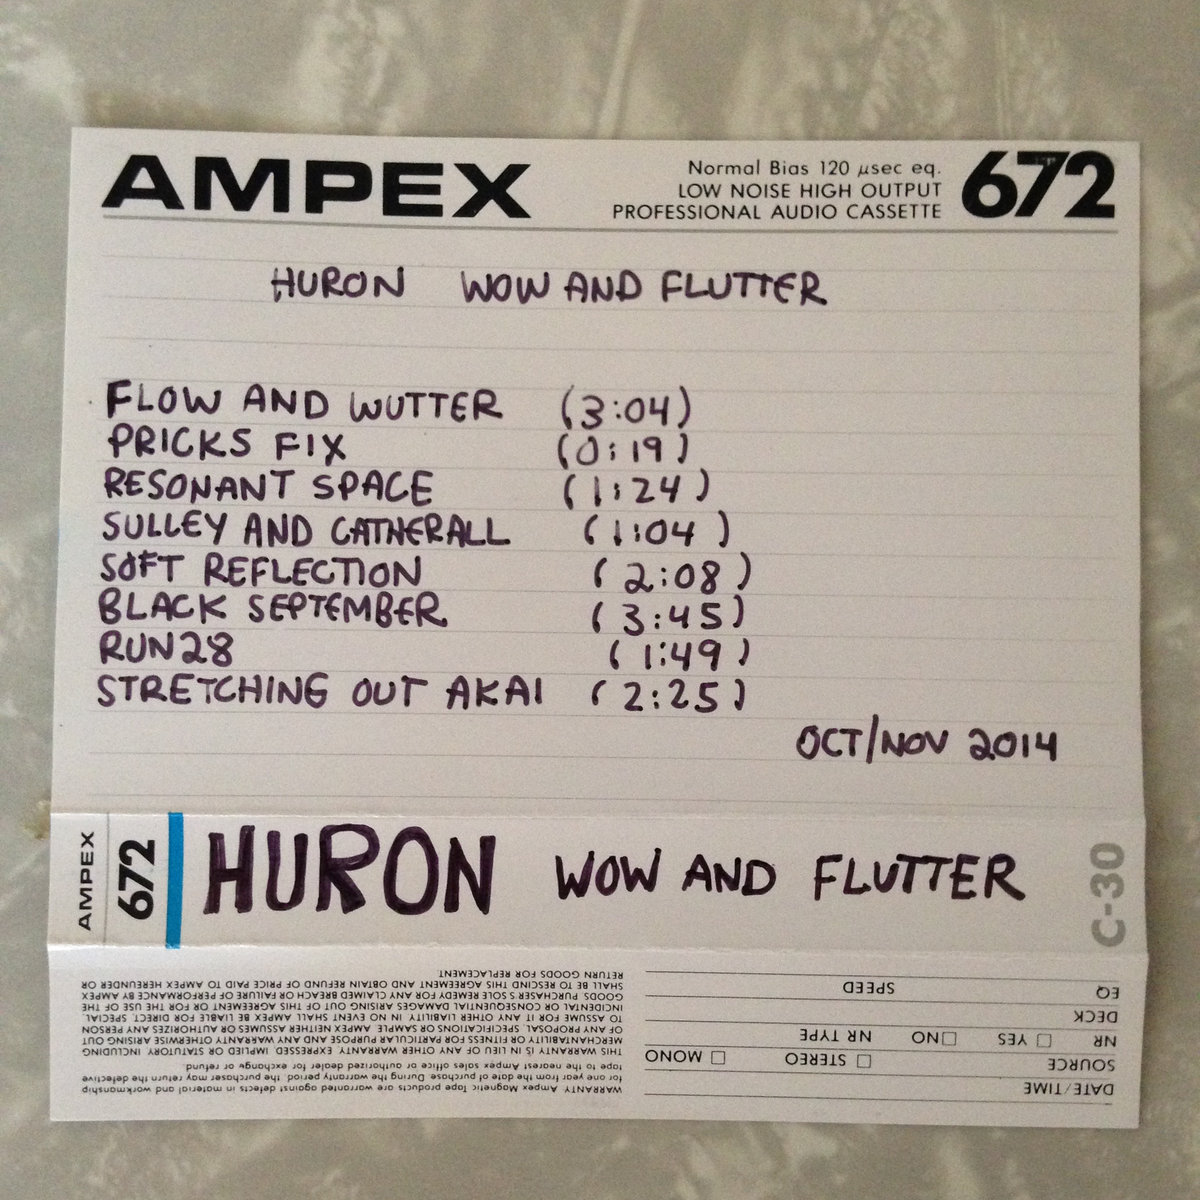 AMPEX
Normal Bias 120 µsec eq.
LOW NOISE HIGH OUTPUT
PROFESSIONAL AUDIO CASSETTE
672
HURON WOW AND FLUTTER
FLOW AND WUTTER (3:04)
PRICKS FIX (0:19)
RESONANT SPACE (1:24)
SULLEY AND CATHERALL (1:04)
SOFT REFLECTION (2:08)
BLACK SEPTEMBER (3:45)
RUN28 (1:49)
STRETCHING OUT AKAI (2:25)
OCT/NOV 2014
AMPEX
672
HURON WOW AND FLUTTER
C-30
DATE/TIME
SOURCE □ STEREO □ MONO
NR □ YES □ NO NR TYPE
DECK
EQ SPEED
WARRANTY Ampex Magnetic Tape products are warranted against defects in material and workmanship
for one year from the date of purchase. During the warranty period, the purchaser may return the defective
tape to the nearest Ampex sales office or authorized dealer for exchange or refund.
THIS WARRANTY IS IN LIEU OF ANY OTHER WARRANTY EXPRESSED, IMPLIED OR STATUTORY, INCLUDING
MERCHANTABILITY OR FITNESS FOR PARTICULAR PURPOSE AND ANY WARRANTY OTHERWISE ARISING OUT
OF ANY PROPOSAL, SPECIFICATIONS OR SAMPLE. AMPEX NEITHER ASSUMES OR AUTHORIZES ANY PERSON
TO ASSUME FOR IT ANY OTHER LIABILITY. IN NO EVENT SHALL AMPEX BE LIABLE FOR DIRECT, SPECIAL,
INCIDENTAL OR CONSEQUENTIAL DAMAGES ARISING OUT OF THIS AGREEMENT OR FOR THE USE OF THE
GOODS. PURCHASER'S SOLE REMEDY FOR ANY CLAIMED BREACH OR FAILURE OF PERFORMANCE BY AMPEX
SHALL BE TO RESCIND THIS AGREEMENT AND OBTAIN REFUND OF PRICE PAID TO AMPEX HEREUNDER OR
RETURN GOODS FOR REPLACEMENT.